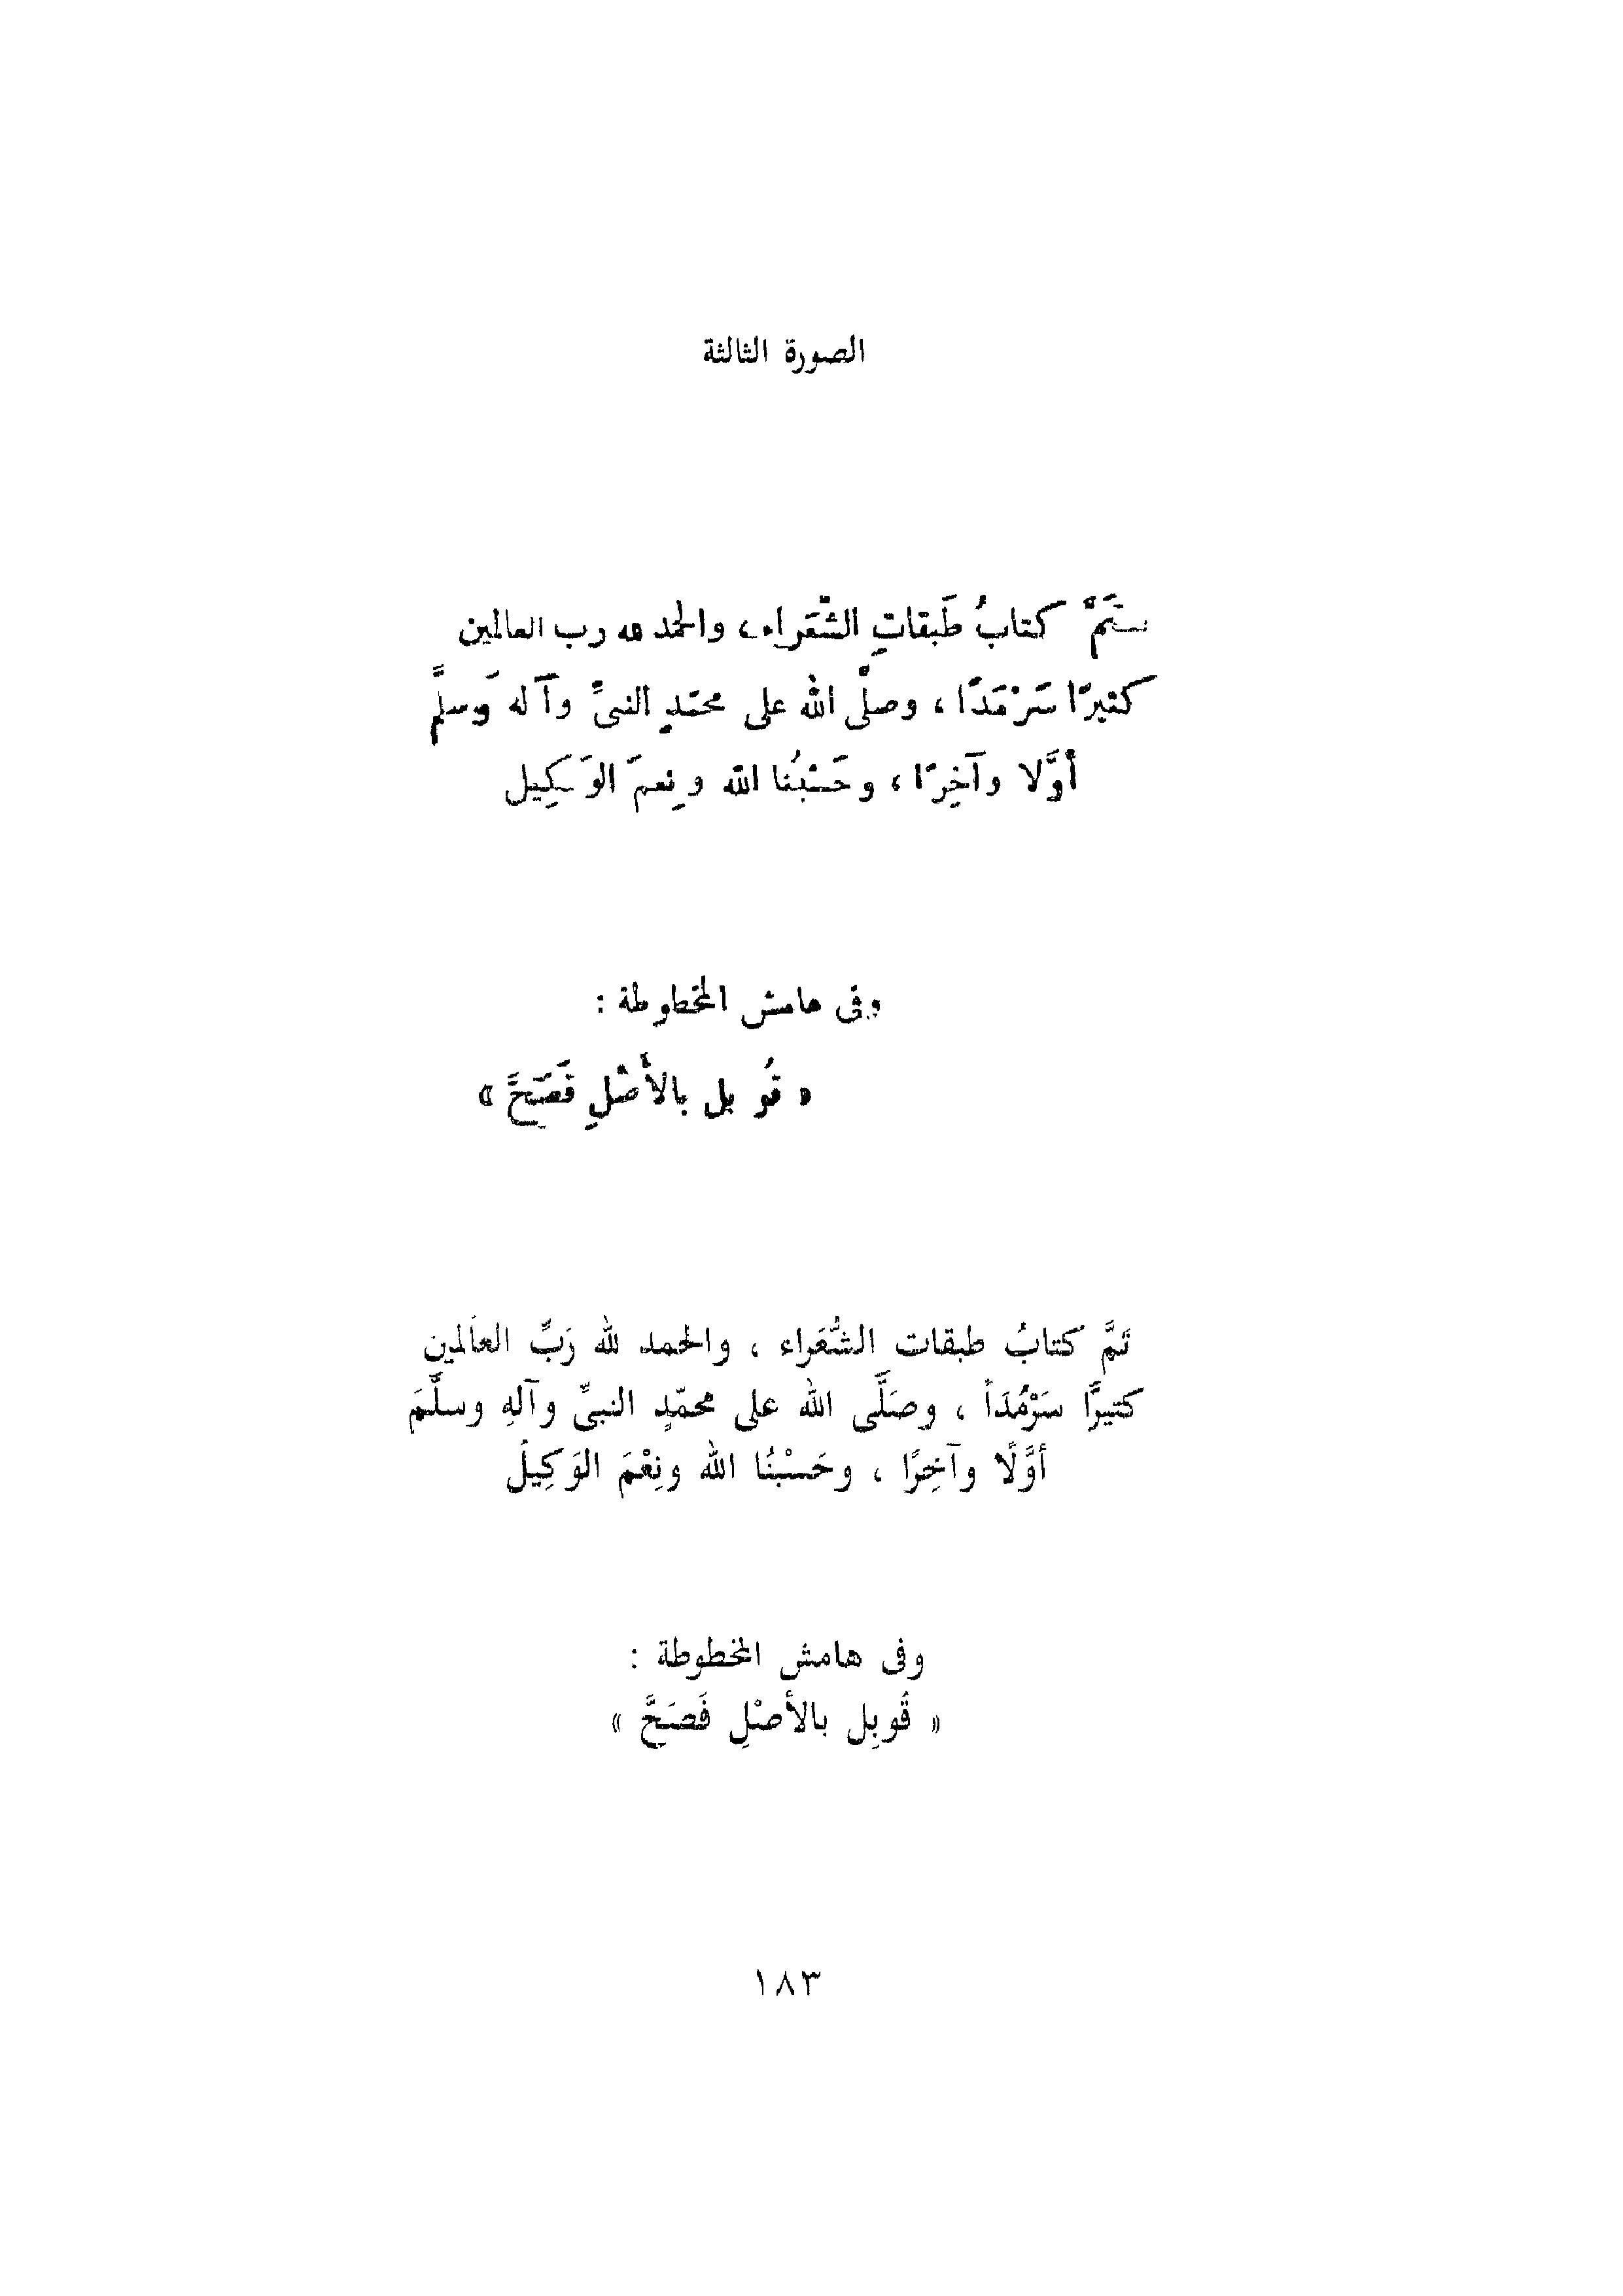 الصورة الثالثة
تَمَّ كتابُ طَبقاتِ الشّعَراء، والحمد لله رب العالمين
كثيرًا سَرْمَدًا، وصلّى الله على محمّدٍ النبىِّ وآله وَسلَّم
أوَّلا وآخِرًا، وحَسْبُنا الله ونِعمَ الوَكِيل
وفى هامش المخطوطة :
« قُوبل بالأَصْلِ فَصَحَّ »
تَمَّ كتابُ طبقات الشُّعَراء ، والحمد لله رَبِّ العالَمين
كثيرًا سَرْمُدَاً ، وصَلَّى الله على محمّدٍ النبىِّ وآلهِ وسلَّمَ
أوَّلًا وآخِرًا ، وحَسْبُنُا الله ونِعْمَ الوَكِيلُ
وفى هامش المخطوطة :
« قُوبِل بالأصْلِ فَصَحَّ »
١٨٣